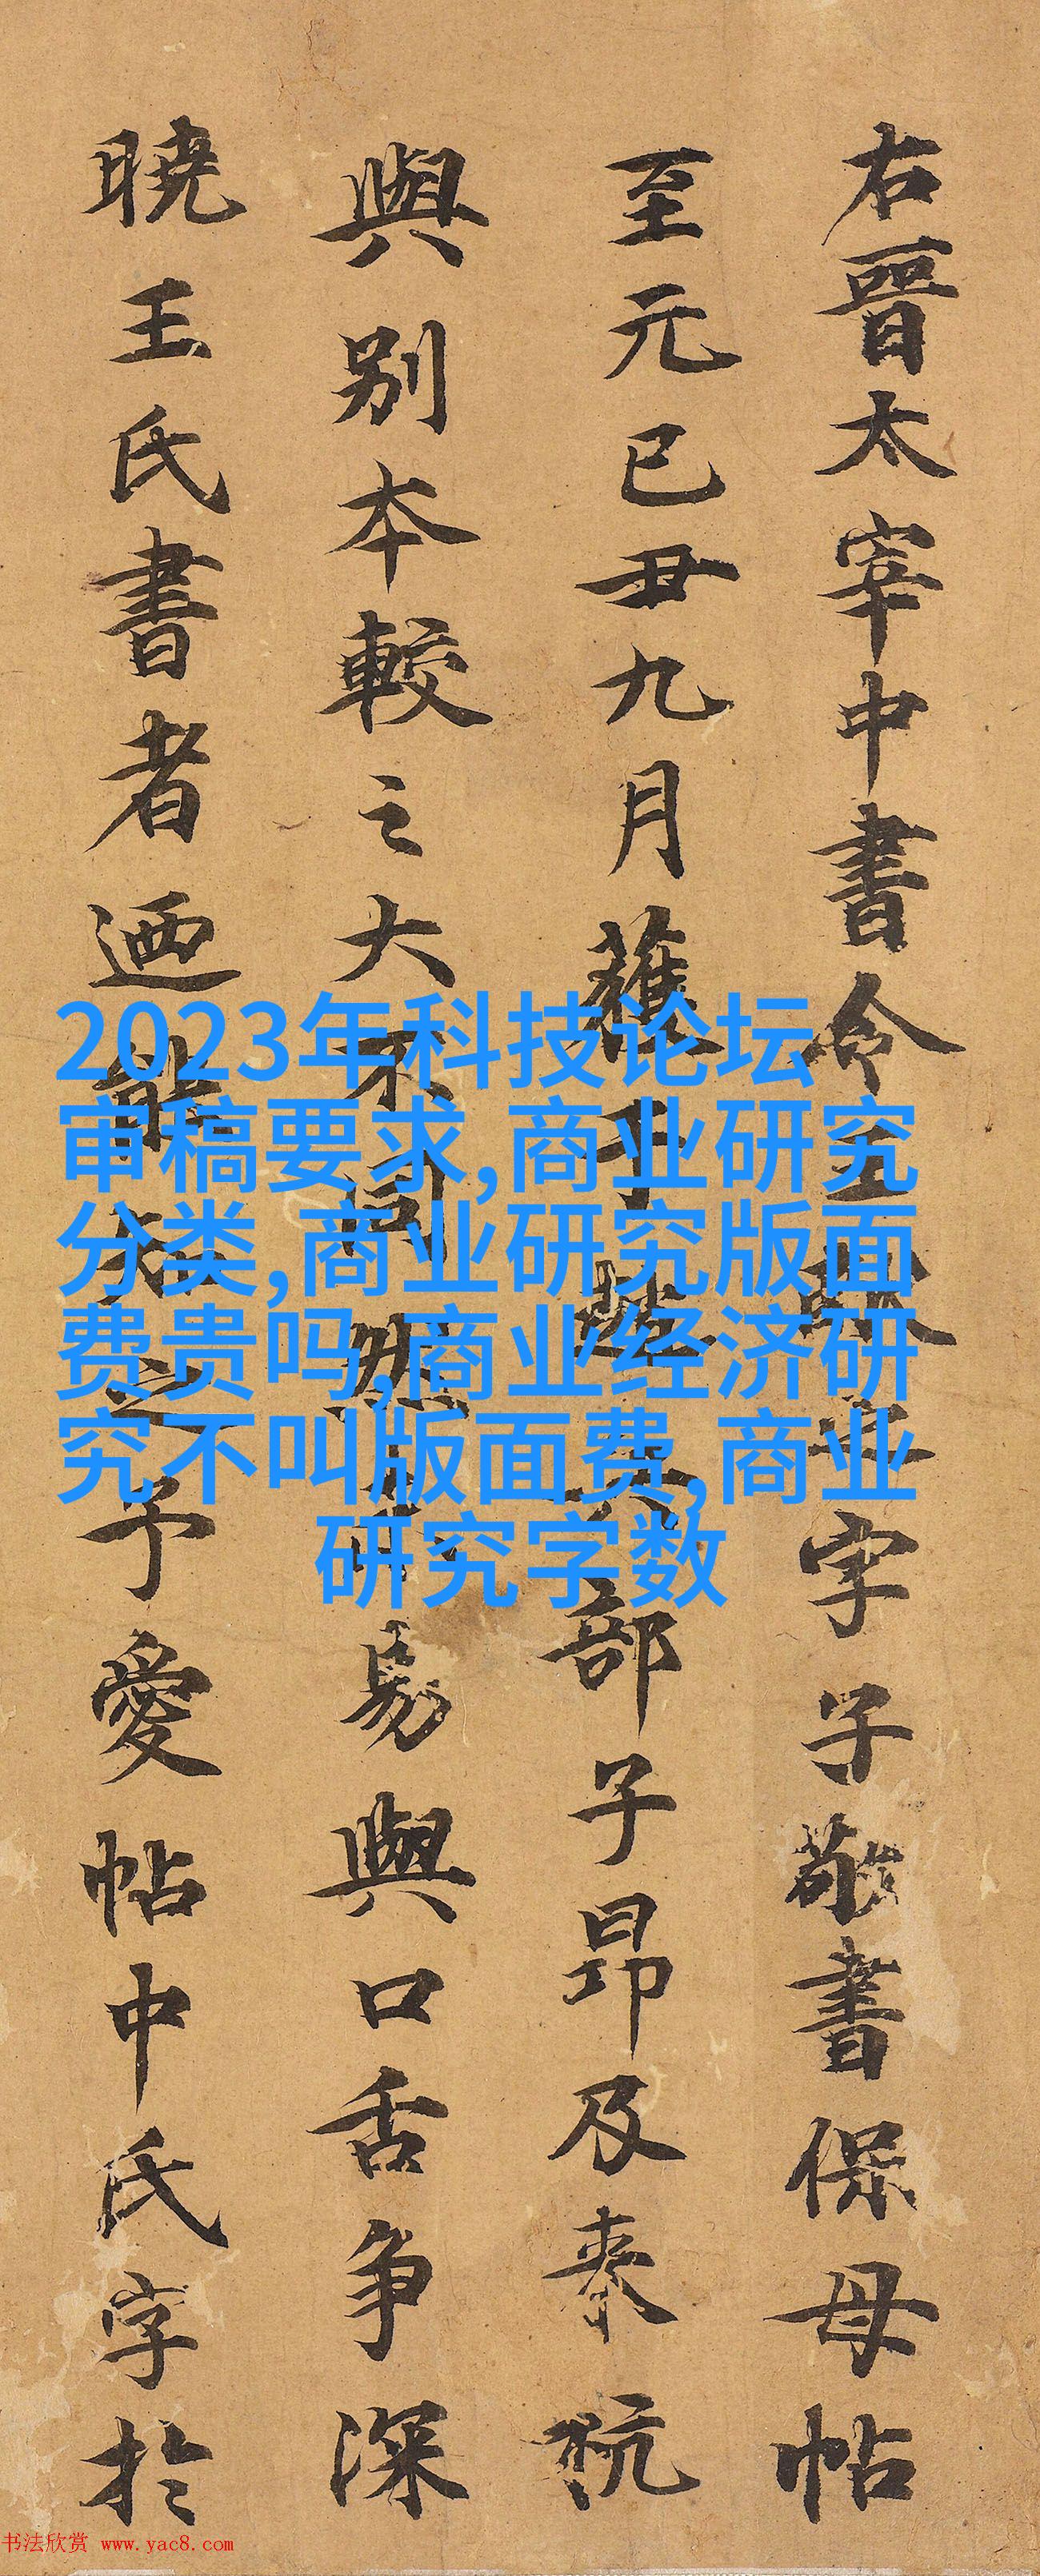 右晉太宰中書令王獻之字子敬書保母帖
至元已丑九月獲于趙兵部子昂及來杭
與别本較之大不同然未易與口舌争深
曉王氏書者迺能知之予愛帖中氏字於
2023年科技论坛
审稿要求,商业研究
分类,商业研究版面
费贵吗,商业经济研
究不叫版面费,商业
研究字数
书法欣赏 www.yac8.com